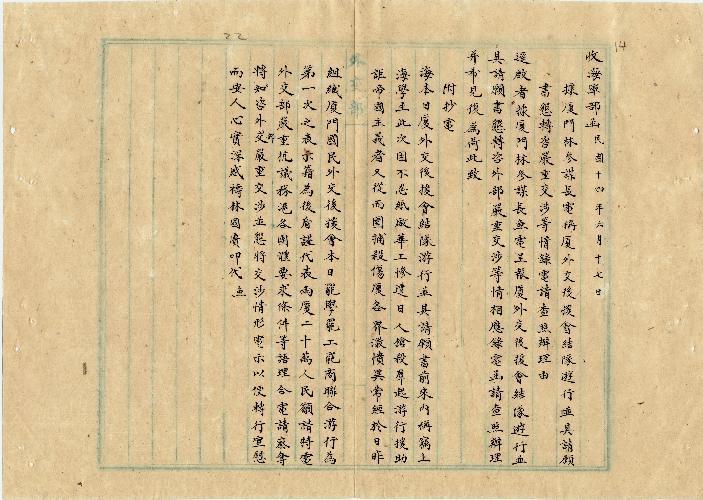 收海軍部函 民國十四年六月十七日
據廈門林參謀長電稱廈外交後援會結隊游行並具請願
書懇轉咨嚴重交涉等情錄電請查照辦理由
逕啟者據廈門林參謀長無電呈報廈外交後援會結隊遊行並
具請願書懇轉咨外部嚴重交涉等情相應錄電函請查照辦理
并希見復為荷此致
附抄電
海本日廈外交後援會結隊游行並具請願書前來內稱窃上
海學生此次因不忍紙廠華工慘遭日人搶殺羣起游行援助
詎帝國主義者又從而圍捕殺傷廈各界激憤異常經於日昨
組織廈門國民外交後援會本日罷學罷工罷商聯合游行為
第一次之表示藉為後盾謹代表禹廈二十萬人民願請特電
外交部嚴重抗議務泥各國雅要求條件等語理合電請察奪
將知咨外交部嚴重交涉並懇將交涉情形電示以便轉行宣慰
而安人心實深感禱林國賡叩代魚
22
14